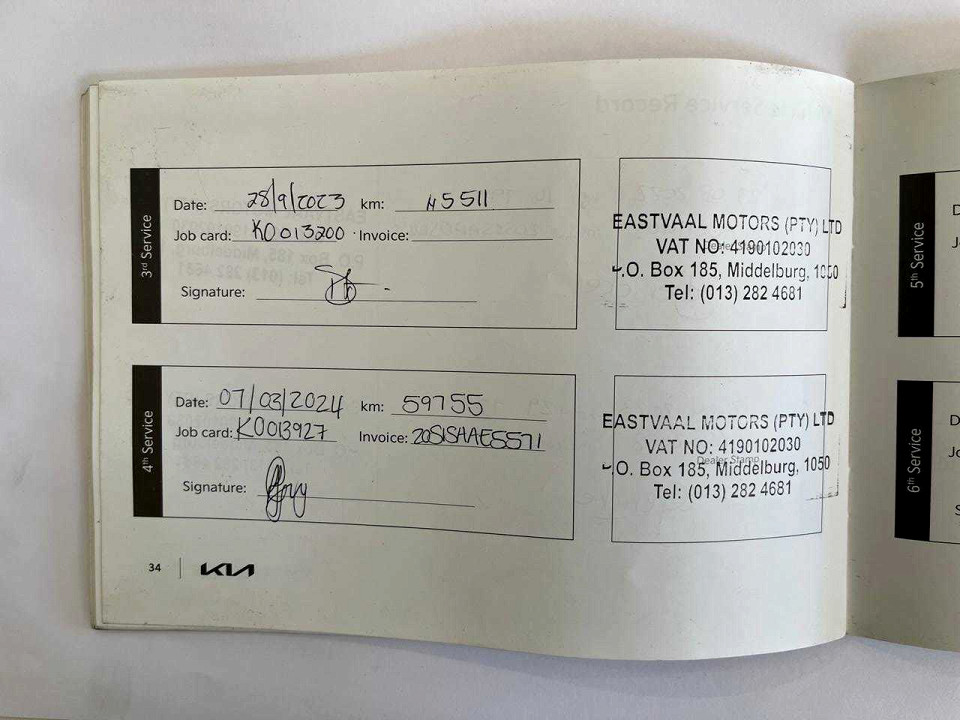 3rd Service
Date: 28/9/2023 km: 45511
Job card: K0013200 Invoice:
Signature:
EASTVAAL MOTORS (PTY) LTD
VAT NO: 4190102030
P.O. Box 185, Middelburg, 1050
Tel: (013) 282 4681
4th Service
Date: 07/03/2024 km: 59755
Job card: K0013927 Invoice:
Signature:
EASTVAAL MOTORS (PTY) LTD
VAT NO: 4190102030
Dealer Stamp
P.O. Box 185, Middelburg, 1050
Tel: (013) 282 4681
34 KIA
5th Service
6th Service